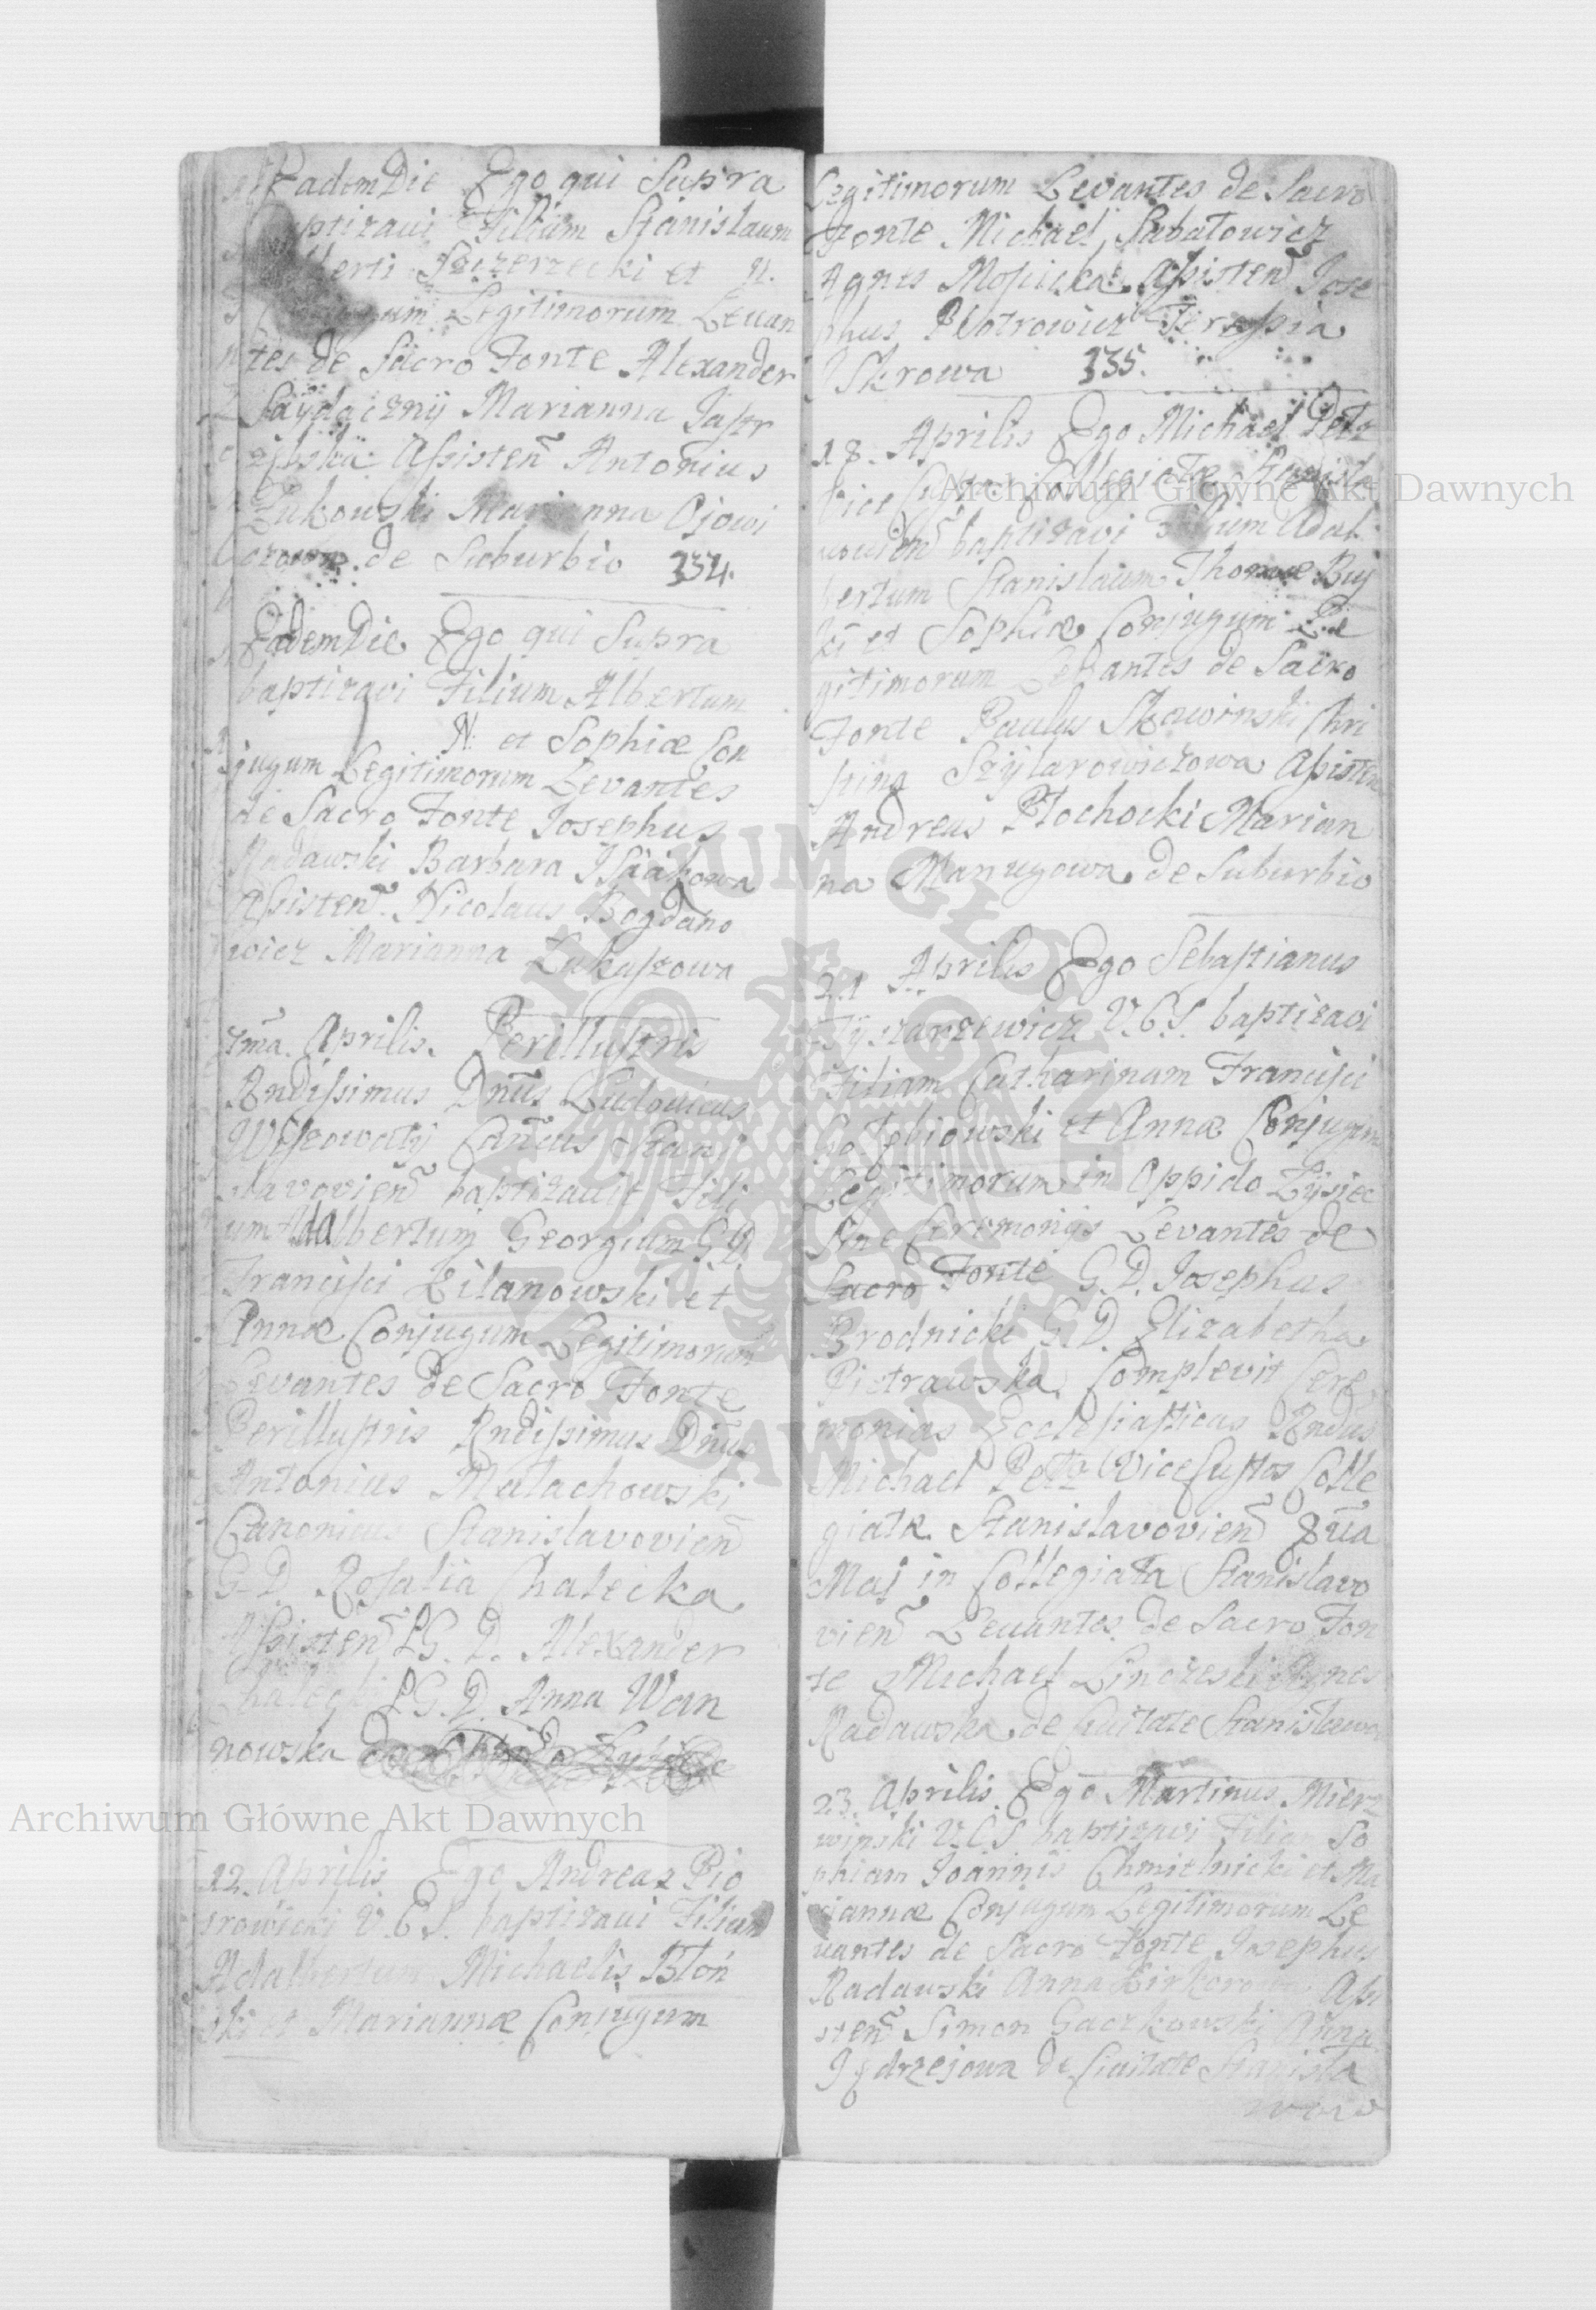 Eadem Die Ego qui Supra
baptizavi Filium Stanislaum
Szczerzecki et N.
Legitimorum Levan
tes de Sacro Fonte Alexander
Saydaczny Marianna Jastr
zębska Assisteñ Antonius
Zukowski Marianna Ojowi
czowa de Suburbio 334.
Eadem Die Ego qui Supra
baptizavi Filium Albertum
N. et Sophiæ Con
jugum Legitimorum Levantes
de Sacro Fonte Josephus
Radawski Barbara Isaakowa
Assisteñ Nicolaus Bogdano
wicz Marianna Łukaszowa
7ma. Aprilis. Perillustris
Rndissimus Dnus Ludovicus
Wiszowaty Cancus Stani
slavovieñ baptizavit Fili
um Adalbertum Georgium G.D.
Francisci Zilanowski et
Annæ Conjugum Legitimorum
Levantes de Sacro Fonte
Perillustris Rndissimus Dnus
Antonius Małachowski
Canonicus Stanislavovieñ
G.D. Rosalia Chalecka
Assisteñ G.D. Alexander
Chalecki G.D. Anna Wan
nowska
12. Aprilis Ego Andreas Pio
trowicki V.C.S. baptizavi Filium
Adalbertum Michaelis Błoń
ski et Mariannæ Conjugum
Legitimorum Levantes de Sacro
Fonte Michael Sabatowicz
Agnes Mosicka Assisteñ Jose
phus Piotrowicz Teressia
Skrowa 335.
18. Aprilis Ego Michael Peltz
Vice Custos Collegiatæ Stanisla
vovieñ baptizavi Filium Adal
bertum Stanislaum Thomæ Buy
ki et Sophiæ Conjugum Le
gitimorum Levantes de Sacro
Fonte Paulus Skawinski Chri
stina Szylarowiczowa Assisteñ
Andreas Płochocki Marian
na Manugowa de Suburbio
21 Aprilis Ego Sebastianus
V.C.S. baptizavi
Filiam Catharinam Francisci
Gołębiowski et Annæ Conjugum
Legitimorum in Oppido Łysiec
sine Ceremonijs Levantes de
Sacro Fonte G.D. Josephus
Brodnicki G.D. Elizabetha
Pietrawska Complevit Cere
monias Ecclesiasticas Rndus
Michael Peltz Vice Custos Colle
giatæ Stanislavovieñ 8va
Maj in Collegiata Stanislavo
vieñ Levantes de Sacro Fon
te Michael Agnes
Radawska de Civitate Stanislavo
23. Aprilis Ego Martinus Mierz
winski V.C.S. baptizavi Filiam So
phiam Joannis Chmielnicki et Ma
riannæ Conjugum Legitimorum Le
vantes de Sacro Fonte Josephus
Radawski Anna Assi
steñ Simon Gaczkowski Anna
Jędrzejowa de Civitate Stanisla
Archiwum Główne Akt Dawnych
Archiwum Główne Akt Dawnych
ARCHIWUM GŁÓWNE AKT DAWNYCH